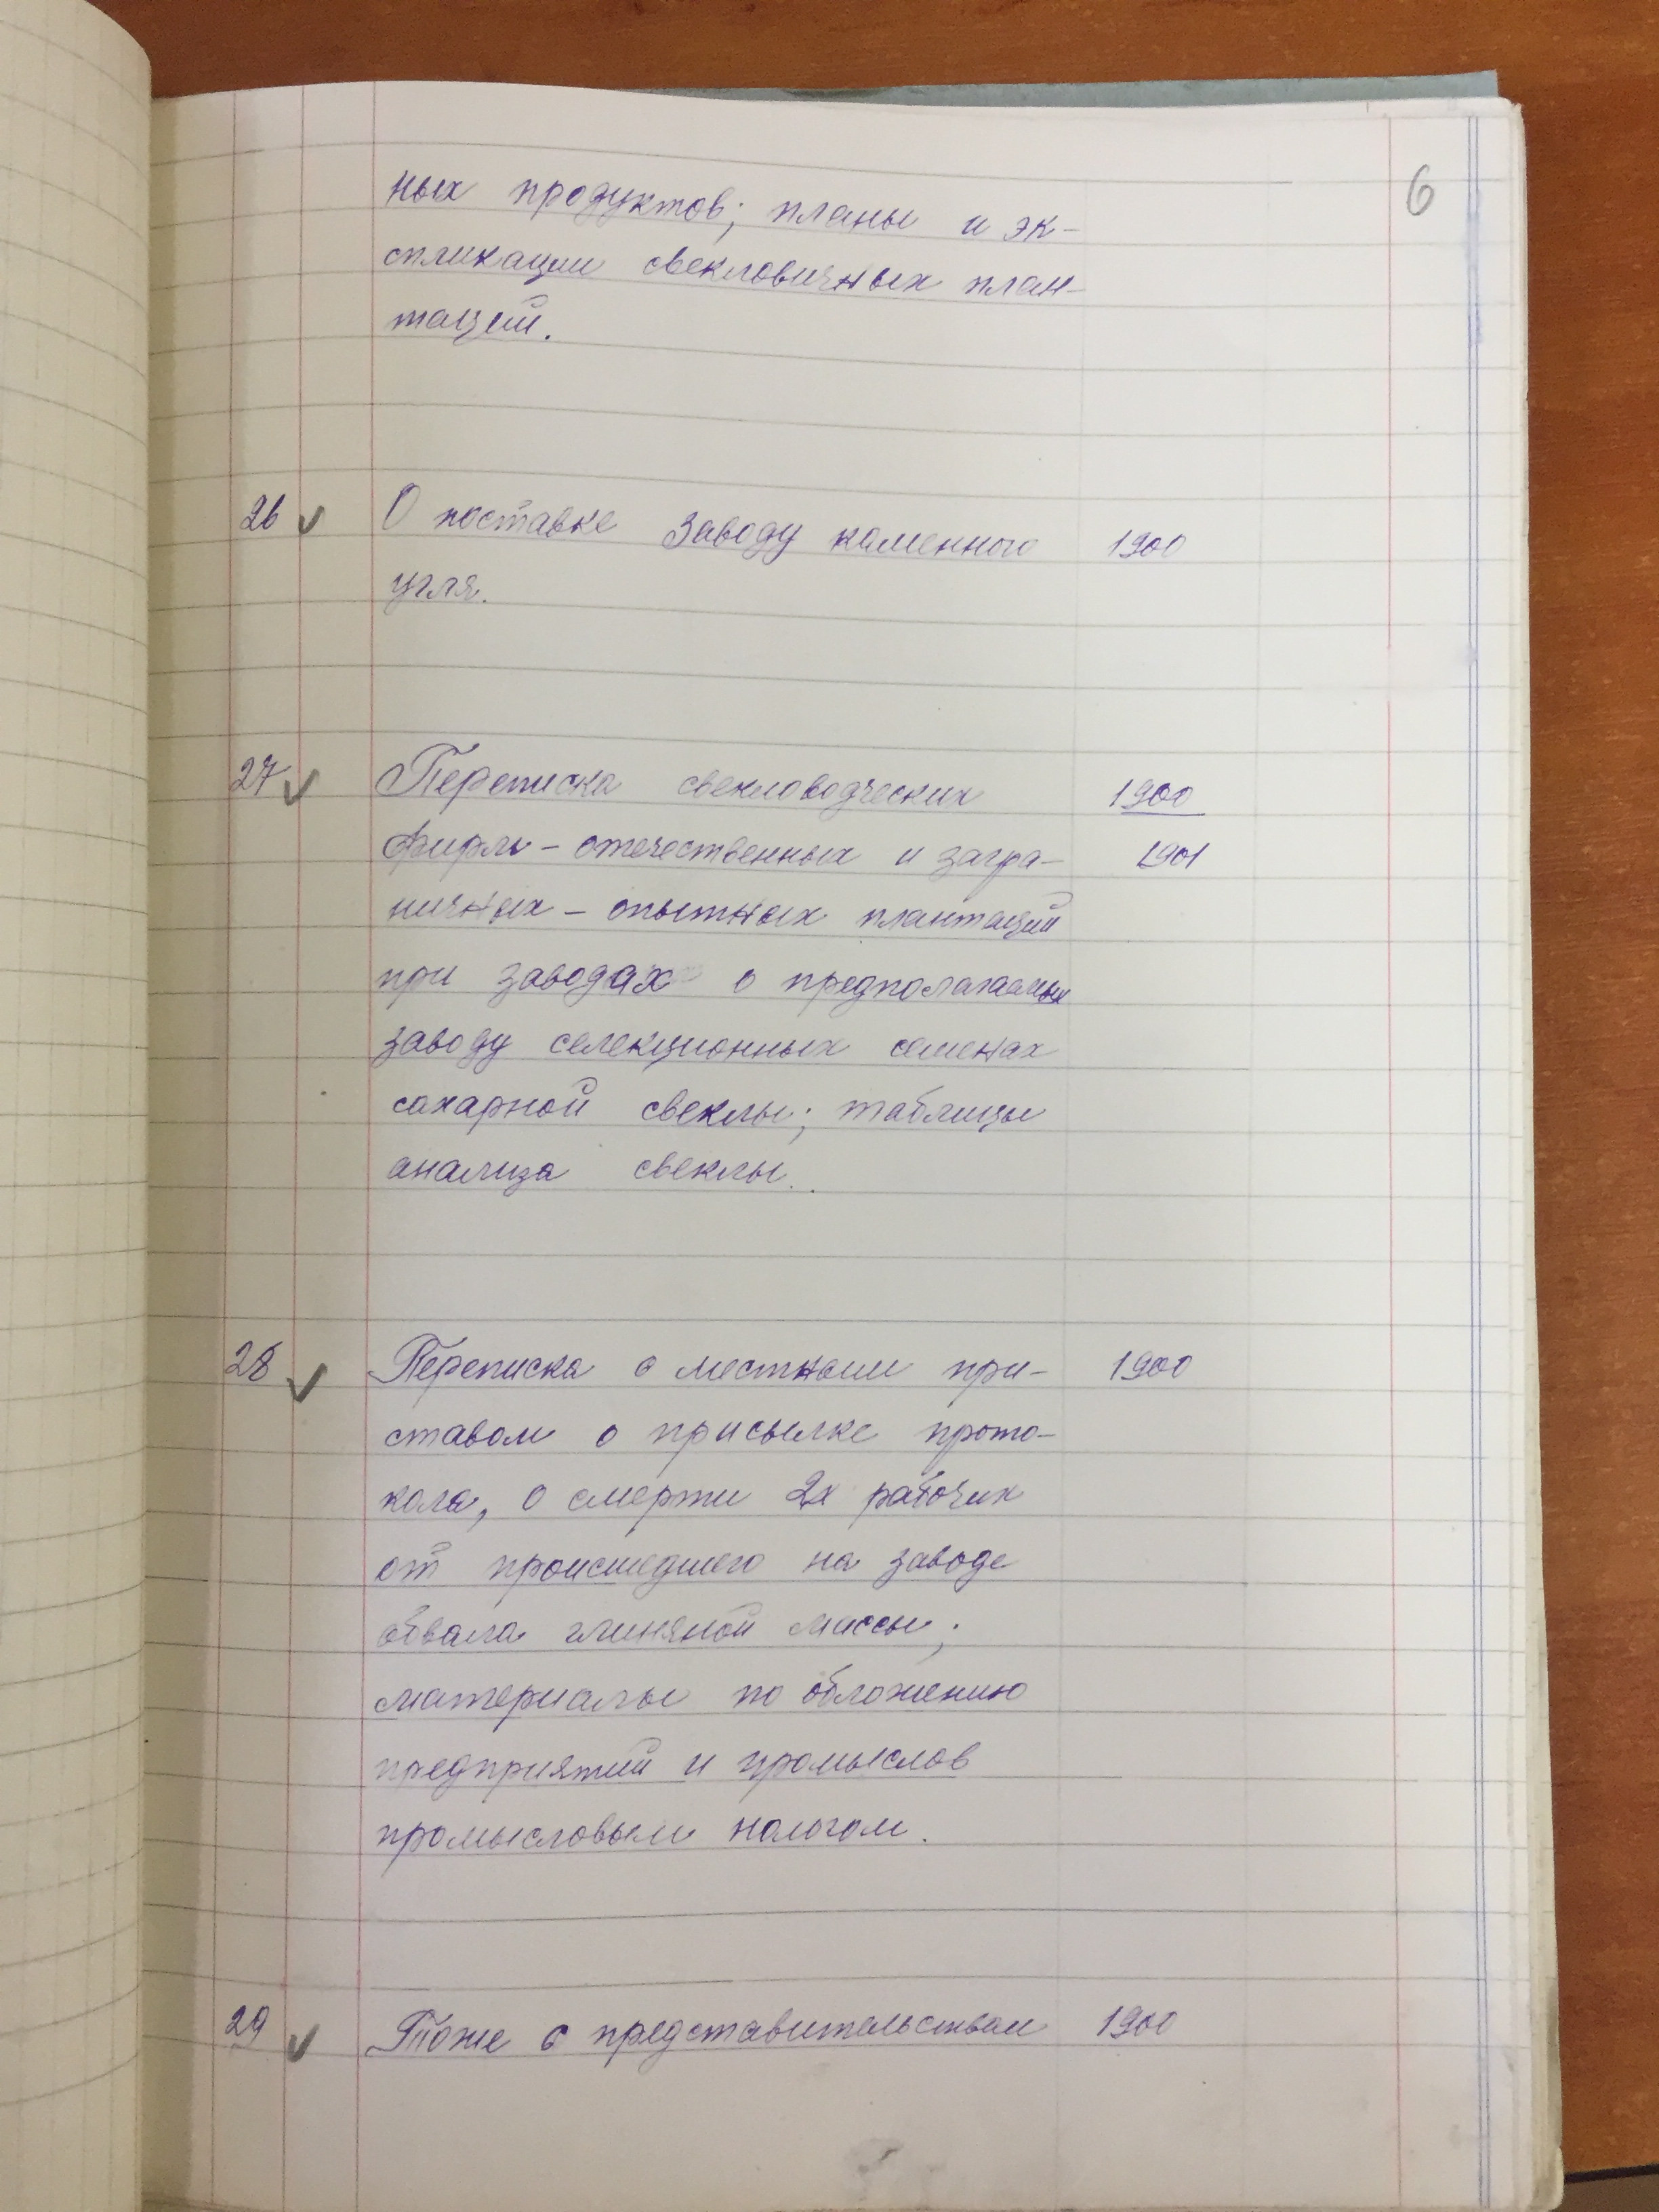 6
ных продуктов; планы и эк-
спликации свекловичных план-
таций.
26 О поставке заводу каменного 1900
угля.
27 Переписка свекловодческих 1900
фирм - отечественных и загра- 1901
ничных - опытных плантаций
при заводах о предполагаемых
заводу селекционных семенах
сахарной свеклы; таблицы
анализа свеклы.
28 Переписка с местным при- 1900
ставом о присылке прото-
кола, о смерти 2х рабочих
от происшедшего на заводе
обвала глиняной массы;
материалы по обложению
предприятий и промыслов
промысловым налогом.
29 Тоже с представительством 1900